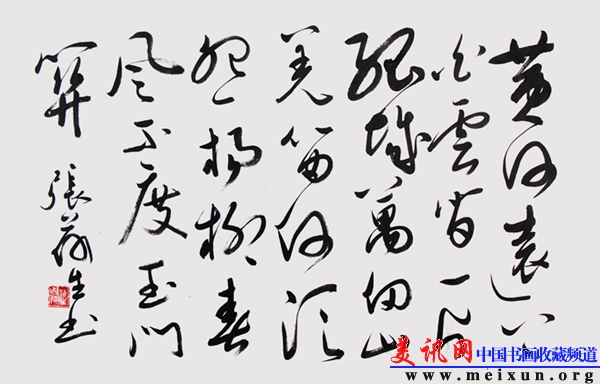 黄河遠上
白雲間一片
孤城萬仞山
羌笛何須
怨楊柳春
風不度玉門
關 張 生书
美讯网 中国书画收藏频道
www.meixun.org